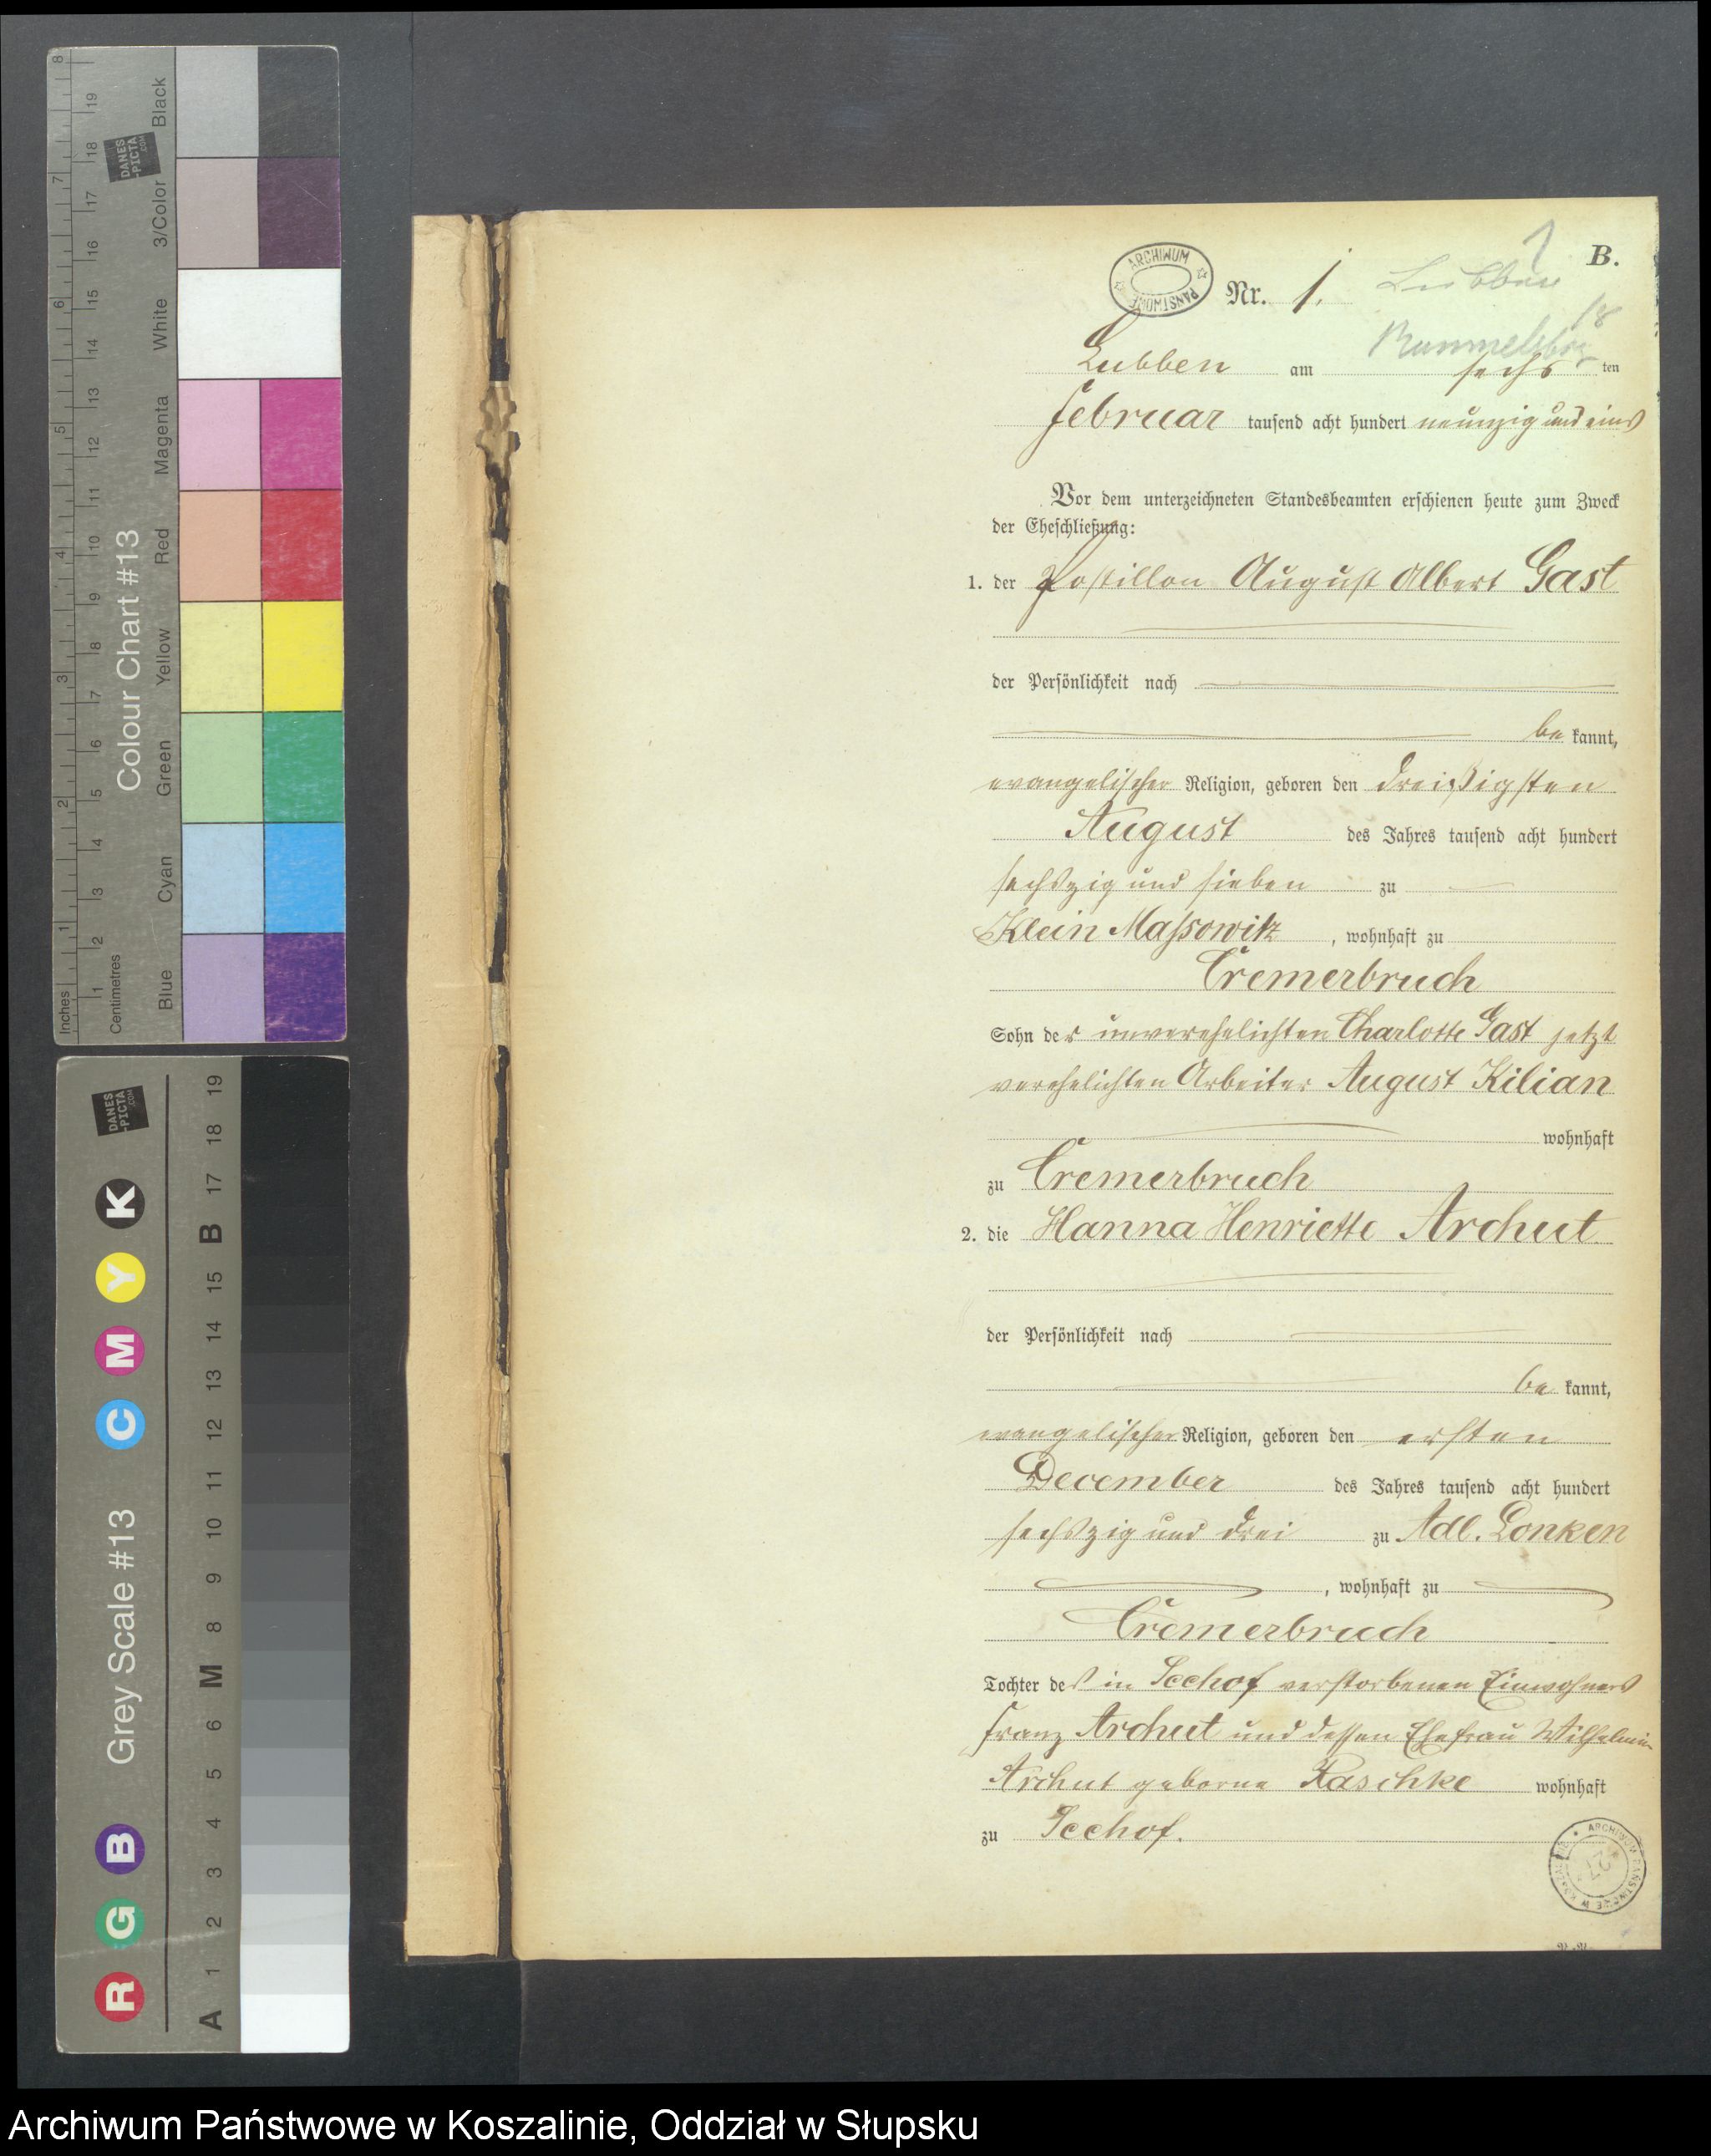 B.
1
Nr. 1.
Lubben
Rummelsbg
18
Lubben am sechs ten
Februar tausend acht hundert neunzig und eins
Vor dem unterzeichneten Standesbeamten erschienen heute zum Zweck
der Eheschließung:
1. der Postillon August Albert Gast
der Persönlichkeit nach
be kannt,
evangelischer Religion, geboren den dreißigsten
August des Jahres tausend acht hundert
sechszig und sieben zu
Klein Massowitz, wohnhaft zu
Cremerbruch
Sohn der unverehelichten Charlotte Gast jetzt
verehelichten Arbeiter August Kilian
wohnhaft
zu Cremerbruch
2. die Hanna Henriette Archut
der Persönlichkeit nach
be kannt,
evangelischer Religion, geboren den ersten
December des Jahres tausend acht hundert
sechszig und drei zu Adl. Lonken
, wohnhaft zu
Cremerbruch
Tochter des in Seehof verstorbenen Einwohners
Franz Archut und dessen Ehefrau Wilhelmine
Archut geborne Raschke wohnhaft
zu Seehof.
ARCHIWUM PAŃSTWOWE
ARCHIWUM PAŃSTWOWE W KOSZALINIE
Colour Chart #13
Blue Cyan Green Yellow Red Magenta White 3/Color Black
Inches 1 2 3 4 5 6 7 8
Centimetres 1 2 3 4 5 6 7 8 9 10 11 12 13 14 15 16 17 18 19
DANES-PICTA.COM
Grey Scale #13
R G B C M Y K
A 1 2 3 4 5 6 M 8 9 10 11 12 13 14 15 B 17 18 19
DANES-PICTA.COM
Archiwum Państwowe w Koszalinie, Oddział w Słupsku